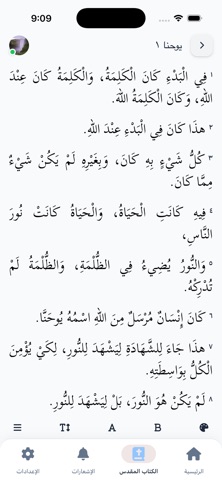 9:09
يوحنا ١
١ فِي الْبَدْءِ كَانَ الْكَلِمَةُ، وَالْكَلِمَةُ كَانَ عِنْدَ
اللهِ، وَكَانَ الْكَلِمَةُ اللهَ.
٢ هذَا كَانَ فِي الْبَدْءِ عِنْدَ اللهِ.
٣ كُلُّ شَيْءٍ بِهِ كَانَ، وَبِغَيْرِهِ لَمْ يَكُنْ شَيْءٌ
مِمَّا كَانَ.
٤ فِيهِ كَانَتِ الْحَيَاةُ، وَالْحَيَاةُ كَانَتْ نُورَ
النَّاسِ،
٥ وَالنُّورُ يُضِيءُ فِي الظُّلْمَةِ، وَالظُّلْمَةُ لَمْ
تُدْرِكْهُ.
٦ كَانَ إِنْسَانٌ مُرْسَلٌ مِنَ اللهِ اسْمُهُ يُوحَنَّا.
٧ هذَا جَاءَ لِلشَّهَادَةِ لِيَشْهَدَ لِلنُّورِ، لِكَيْ يُؤْمِنَ
الْكُلُّ بِوَاسِطَتِهِ.
٨ لَمْ يَكُنْ هُوَ النُّورَ، بَلْ لِيَشْهَدَ لِلنُّورِ.
T A B
الرئيسية الكتاب المقدس الإشعارات الإعدادات